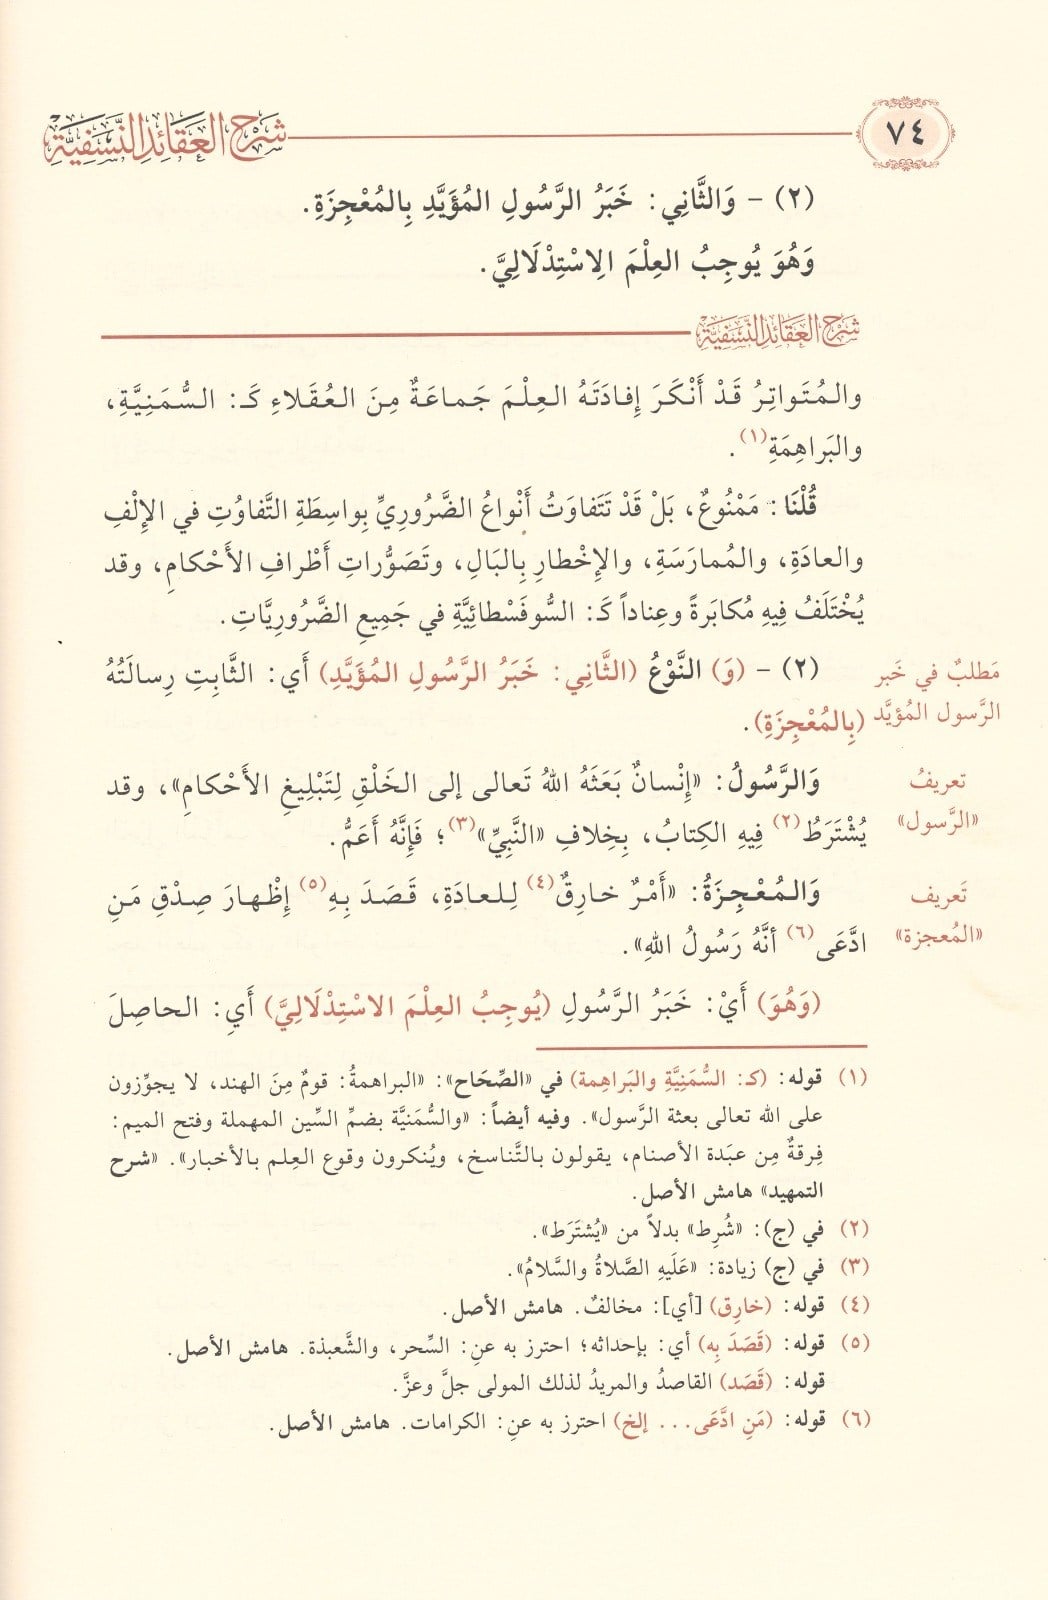 ٧٤
شرح العقائد النسفية
(٢) - وَالثَّانِي: خَبَرُ الرَّسُولِ المُؤَيَّدِ بِالمُعْجِزَةِ.
وَهُوَ يُوجِبُ العِلْمَ الِاسْتِدْلَالِيَّ.
شرح العقائد النسفية
والمُتَواتِرُ قَدْ أَنْكَرَ إِفادَتَهُ العِلْمَ جَماعَةٌ مِنَ العُقَلاءِ كَـ: السُّمَنِيَّةِ،
والبَراهِمَةِ(١).
قُلْنَا: مَمْنُوعٌ، بَلْ قَدْ تَتَفاوَتُ أَنْواعُ الضَّرُورِيِّ بِواسِطَةِ التَّفاوُتِ في الإِلْفِ
والعادَةِ، والمُمارَسَةِ، والإِخْطارِ بِالبَالِ، وتَصَوُّراتِ أَطْرافِ الأَحْكامِ، وقد
يُخْتَلَفُ فِيهِ مُكابَرَةً وعِناداً كَـ: السُّوفَسْطائِيَّةِ في جَمِيعِ الضَّرُورِيَّاتِ.
مَطلبٌ في خَبر
الرَّسول المُؤيَّد
(٢) - (وَ) النَّوْعُ (الثَّانِي: خَبَرُ الرَّسُولِ المُؤَيَّدِ) أَي: الثَّابِتِ رِسالَتُهُ
(بِالمُعْجِزَةِ).
تعريفُ
«الرَّسول»
وَالرَّسُولُ: «إِنْسانٌ بَعَثَهُ اللهُ تَعالى إلى الخَلْقِ لِتَبْلِيغِ الأَحْكامِ»، وقد
يُشْتَرَطُ(٢) فِيهِ الكِتابُ، بِخِلافِ «النَّبِيِّ»(٣)؛ فَإِنَّهُ أَعَمُّ.
تَعريف
«المُعجزة»
وَالمُعْجِزَةُ: «أَمْرٌ خارِقٌ(٤) لِلعادَةِ، قَصَدَ بِهِ(٥) إِظْهارَ صِدْقِ مَنِ
ادَّعَى(٦) أنَّهُ رَسُولُ اللهِ».
(وَهُوَ) أَيْ: خَبَرُ الرَّسُولِ (يُوجِبُ العِلْمَ الاسْتِدْلَالِيَّ) أَيِ: الحاصِلَ
(١) قوله: (كـ: السُّمَنِيَّةِ والبَراهِمة) في «الصِّحَاح»: «البراهمةُ: قومٌ مِنَ الهند، لا يجوِّزون
على الله تعالى بعثة الرَّسول». وفيه أيضاً: «والسُّمَنيَّة بضمِّ السِّين المهملة وفتح الميم:
فِرقةٌ مِن عبَدة الأصنام، يقولون بالتَّناسخ، ويُنكرون وقوع العِلم بالأخبار». «شرح
التمهيد» هامش الأصل.
(٢) في (ج): «شُرِط» بدلاً من «يُشتَرَط».
(٣) في (ج) زيادة: «عَلَيهِ الصَّلاةُ والسَّلامُ».
(٤) قوله: (خارِق) [أي]: مخالفٌ. هامش الأصل.
(٥) قوله: (قَصَدَ بِه) أي: بإحداثه؛ احترز به عنِ: السِّحر، والشَّعبذة. هامش الأصل.
قوله: (قَصَد) القاصدُ والمريدُ لذلك المولى جلَّ وعزَّ.
(٦) قوله: (مَنِ ادَّعَى... إلخ) احترز به عنِ: الكرامات. هامش الأصل.